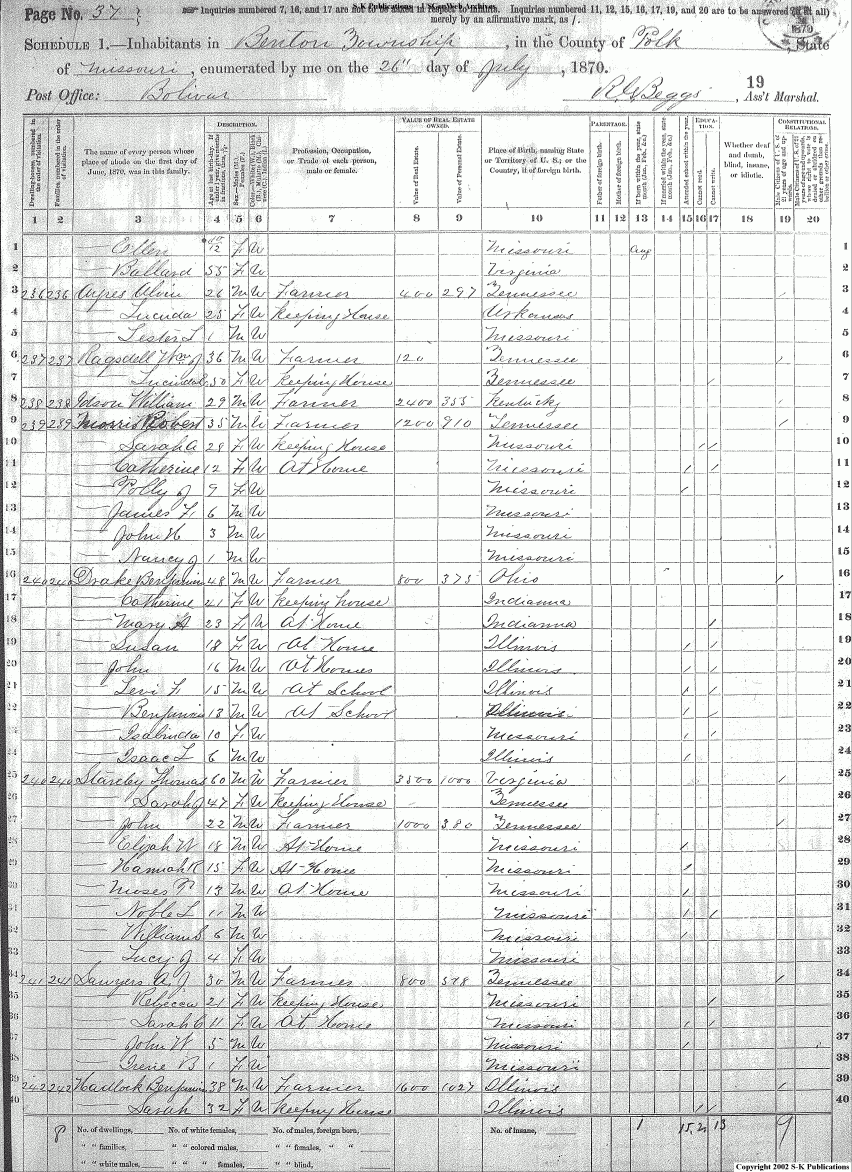 S-K Publications - USGenWeb Archives
Page No. 37
Inquiries numbered 7, 16, and 17 are not to be asked in respect to infants. Inquiries numbered 11, 12, 15, 16, 17, 19, and 20 are to be answered (if at all)
merely by an affirmative mark, as /.
Schedule 1.—Inhabitants in Benton Township, in the County of Polk, State
of Missouri, enumerated by me on the 26" day of July, 1870.
19
Post Office: Bolivar R. Beggs, Ass't Marshal.
Dwelling-houses, numbered in the order of visitation.
Families, numbered in the order of visitation.
The name of every person whose place of abode on the first day of June, 1870, was in this family.
Description.
Profession, Occupation, or Trade of each person, male or female.
Value of Real Estate owned.
Value of Real Estate.
Value of Personal Estate.
Place of Birth, naming State or Territory of U. S.; or the Country, if of foreign birth.
Parentage.
Father of foreign birth.
Mother of foreign birth.
Education.
Attended school within the year.
Cannot read.
Cannot write.
Whether deaf and dumb, blind, insane, or idiotic.
Constitutional Relations.
1 2 3 4 5 6 7 8 9 10 11 12 13 14 15 16 17 18 19 20
1 — Ellen F W Missouri Aug 1
2 — Ballard 55 F W Virginia 2
3 236 236 Ayres Alvin 26 M W Farmer 400 297 Tennessee / 3
4 — Lucinda 25 F W Keeping House Arkansas 4
5 — Lester L 1 M W Missouri 5
6 237 237 Ragsdell Wm J 36 M W Farmer 120 Tennessee / 6
7 — Lucinda 50 F W Keeping House Tennessee / 7
8 238 238 Idson William 29 M W Farmer 2400 355 Kentucky / 8
9 239 239 Morris Robert 35 M W Farmer 1200 910 Tennessee / 9
10 — Sarah A 28 F W Keeping House Missouri / / 10
11 — Catherine 12 F W At Home Missouri / / 11
12 — Polly J 9 F W Missouri / 12
13 — James F 6 M W Missouri 13
14 — John H 3 M W Missouri 14
15 — Nancy J 1 M W Missouri 15
16 240 240 Drake Benjamin 48 M W Farmer 800 375 Ohio / 16
17 — Catherine 41 F W Keeping house Indianna 17
18 — Mary 23 F W At Home Indianna / 18
19 — Susan 18 F W At Home Illinois / / 19
20 — John 16 M W At Homes Illinois / / 20
21 — Levi F 15 M W At School Illinois / / 21
22 — Benjamin 13 M W At School Illinois / / 22
23 — Isabinda 10 F W Missouri / / 23
24 — Isaac L 6 M W Illinois / 24
25 240 240 Stareby Thomas 60 M W Farmer 3500 1000 Virginia / 25
26 — Sarah J 47 F W Keeping House Tennessee 26
27 — John 22 M W Farmer 1000 380 Tennessee / 27
28 — Elijah W 18 M W At Home Missouri / 28
29 — Hannah R 15 F W At Home Missouri / 29
30 — Moses 13 M W At Home Missouri / 30
31 — Noble L 11 M W Missouri / / 31
32 — William S 6 M W Missouri / 32
33 — Lucy J 4 F W Missouri 33
34 241 241 Sawyers A. J 30 M W Farmer 800 578 Tennessee / 34
35 — Rebecca 21 F W Keeping House Missouri / 35
36 — Sarah C 11 F W At Home Missouri / / 36
37 — John W 5 M W Missouri / 37
38 — Irene B 1 F W Missouri 38
39 242 242 Hadlock Benjamin 38 M W Farmer 1600 1027 Illinois / 39
40 — Sarah 32 F W Keeping House Illinois / / 40
8 No. of dwellings, No. of white females, No. of males, foreign born, No. of insane, 1 15 2 13 9
" " families, " " colored males, " " females, " "
" " white males, " " " females, " " blind,
Copyright 2002 S-K Publications